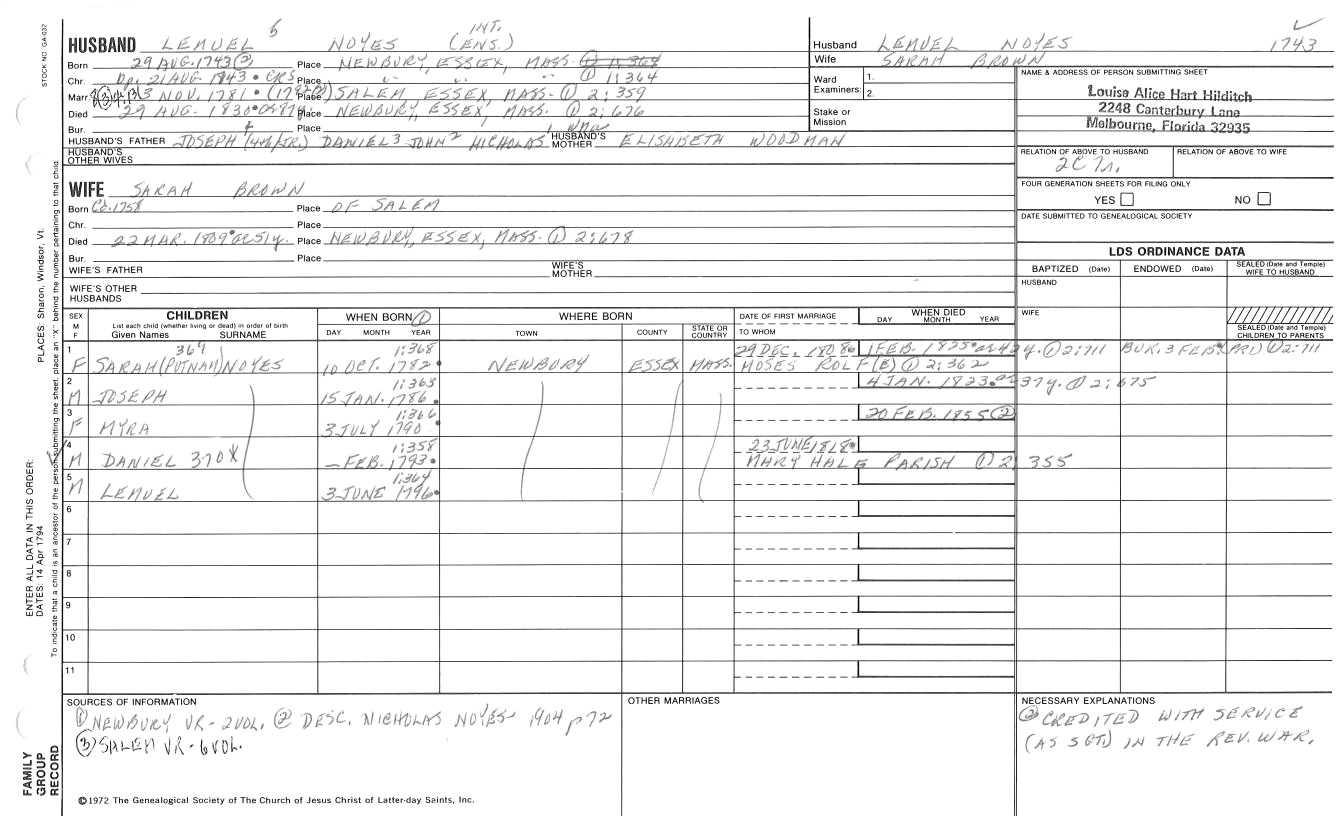 STOCK NO. GA-037
5 INT.
HUSBAND LEMUEL NOYES (ENS.)
Born 29 AUG. 1743 (2) Place NEWBURY, ESSEX, MASS. ① 1:368
Chr. Bp. 21 AUG. 1743 • CRS Place " " " ① 1:364
Marr. 3 NOV. 1781 • Place SALEM, ESSEX, MASS. ① 2:359
Died 29 AUG. 1830 • ae 87y. Place NEWBURY, ESSEX, MASS. ① 2:676
Bur. Place
HUSBAND'S FATHER JOSEPH 4 (4th/JR.) DANIEL 3 JOHN 2 NICHOLAS 1 HUSBAND'S MOTHER ELISABETH WOODMAN
HUSBAND'S OTHER WIVES
Husband LEMUEL NOYES 1743
Wife SARAH BROWN
Ward Examiners: 1.
2.
Stake or Mission
NAME & ADDRESS OF PERSON SUBMITTING SHEET
Louise Alice Hart Hilditch
2248 Canterbury Lane
Melbourne, Florida 32935
RELATION OF ABOVE TO HUSBAND RELATION OF ABOVE TO WIFE
2C 7r.
FOUR GENERATION SHEETS FOR FILING ONLY
YES NO
DATE SUBMITTED TO GENEALOGICAL SOCIETY
WIFE SARAH BROWN
Born Ca. 1758 Place OF SALEM
Chr. Place
Died 22 MAR. 1809 • ae 51y. Place NEWBURY, ESSEX, MASS. ① 2:678
Bur. Place
WIFE'S FATHER WIFE'S MOTHER
WIFE'S OTHER HUSBANDS
LDS ORDINANCE DATA
BAPTIZED (Date) ENDOWED (Date) SEALED (Date and Temple) WIFE TO HUSBAND
HUSBAND
WIFE
SEALED (Date and Temple) CHILDREN TO PARENTS
SEX M F CHILDREN List each child (whether living or dead) in order of birth Given Names SURNAME
WHEN BORN ① DAY MONTH YEAR
WHERE BORN TOWN COUNTY STATE OR COUNTRY
DATE OF FIRST MARRIAGE TO WHOM
WHEN DIED DAY MONTH YEAR
1 364 1:368 29 DEC. 1808 • 1 FEB. 1825 • ae 42y. ① 2:711 BUR. 3 FEB. ① 2:711
F SARAH (PUTNAM) NOYES 10 OCT. 1782 • NEWBURY ESSEX MASS. MOSES ROLF(E) ① 2:362
2 1:363 4 JAN. 1823 • ae 37y. ① 2:675
M JOSEPH 15 JAN. 1786 •
3 1:366 20 FEB. 1855 (2)
F MYRA 3 JULY 1790 •
4 1:358 23 JUNE 1818 •
M DANIEL 370 X — FEB. 1793 • MARY HALE PARISH ① 2:355
5 1:364
M LEMUEL 3 JUNE 1796 •
6
7
8
9
10
11
SOURCES OF INFORMATION
① NEWBURY VR - 2 VOL. ② DESC. NICHOLAS NOYES 1904 p 72
③ SALEM VR - 6 VOL.
OTHER MARRIAGES
NECESSARY EXPLANATIONS
② CREDITED WITH SERVICE
(AS SGT.) IN THE REV. WAR.
©1972 The Genealogical Society of The Church of Jesus Christ of Latter-day Saints, Inc.
FAMILY GROUP RECORD
ENTER ALL DATA IN THIS ORDER: PLACES: Sharon, Windsor, Vt.
DATES: 14 Apr 1794
To indicate that a child is an ancestor of the person submitting the sheet, place an "X" behind the number pertaining to that child